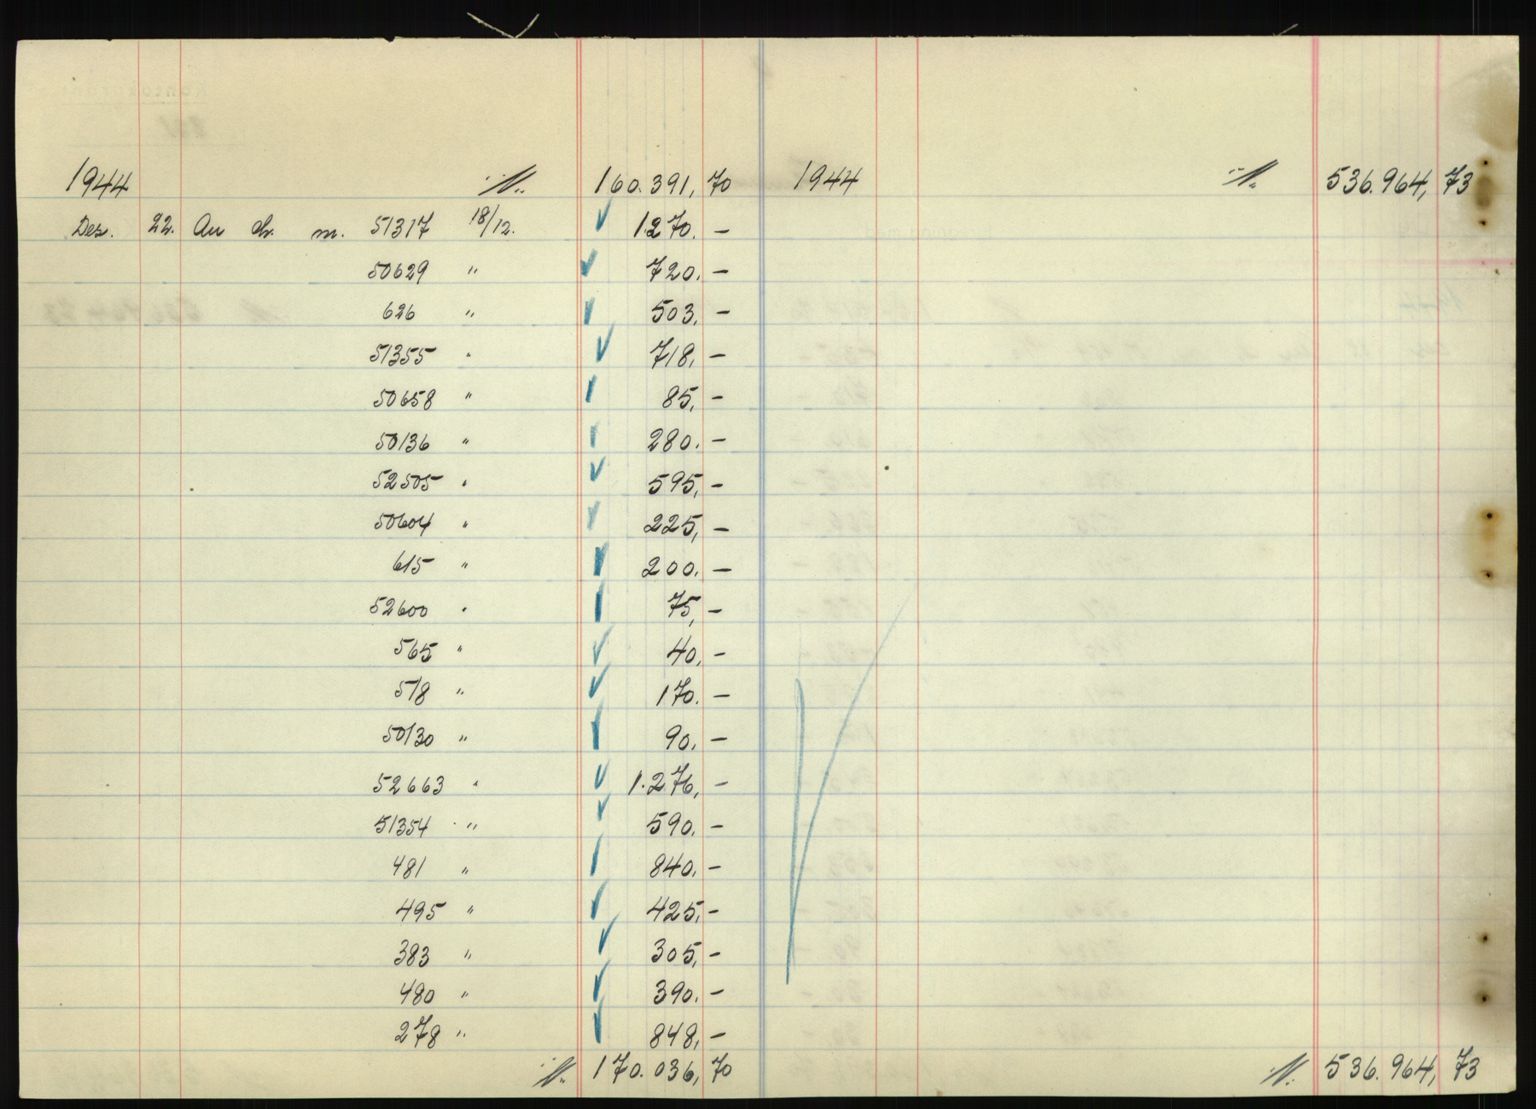 1944 ./. 160.391,70 1944 ./. 536.964,73
Dez. 22. An ch. m. 51317 18/12. 1.270.-
50629 " 720.-
626 " 503.-
51355 " 718.-
50658 " 85.-
50136 " 280.-
52505 " 595.-
50604 " 225.-
615 " 200.-
52600 " 75,-
565 " 40.-
518 " 170.-
50130 " 90.-
52663 " 1.276,-
51354 " 590.-
481 " 840.-
495 " 425.-
383 " 305.-
480 " 390.-
278 " 848.-
./. 170.036,70 ./. 536.964,73